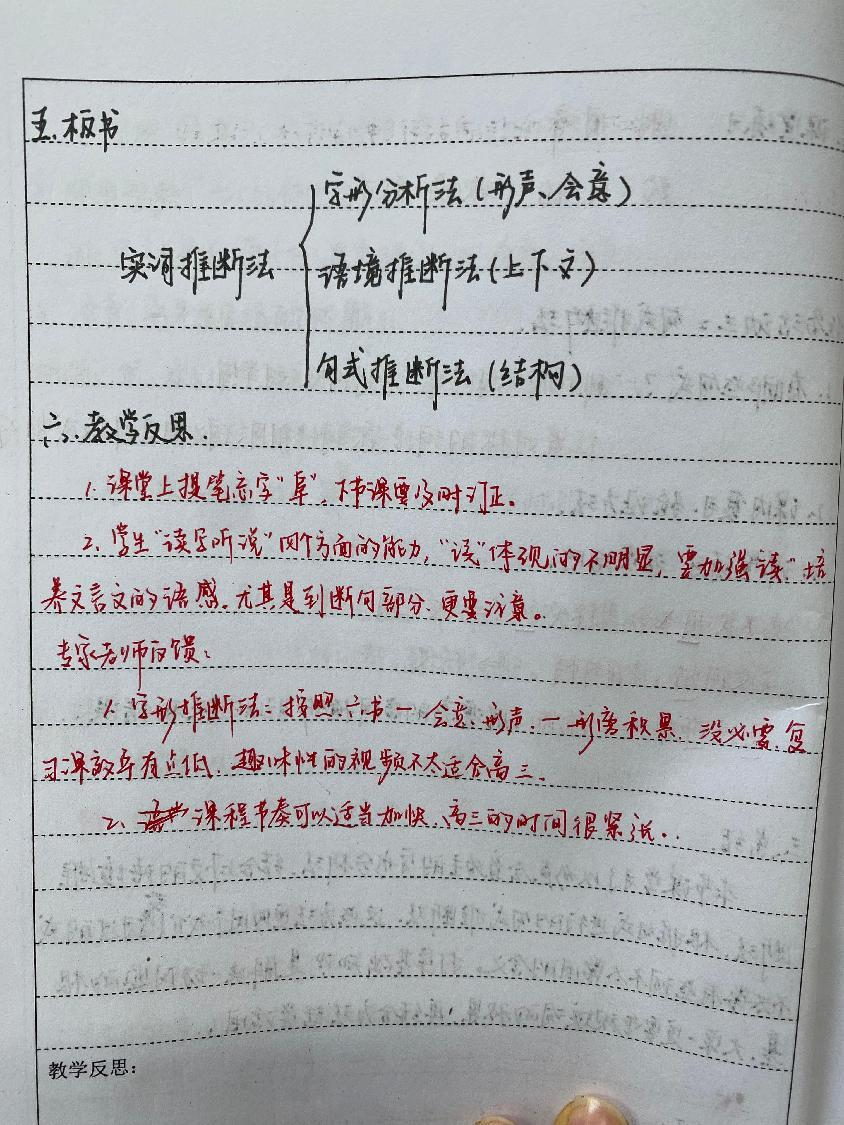 五、板书
字形分析法（形声、会意）
实词推断法 语境推断法（上下文）
句式推断法（结构）
六、教学反思.
1. 课堂上提笔忘字“草”，下节课要及时订正。
2. 学生“读写听说”四个方面的能力，“读”体现的不明显，要加强读“培
养文言文的语感。尤其是到断句部分，更要注意。
专家老师反馈：
1. 字形推断法：按照六书一会意、形声，一形磨积累，没必要，复
习课效率有点低，趣味性的视频不太适合高三。
2、课程节奏可以适当加快，高三的时间很紧张..
教学反思：